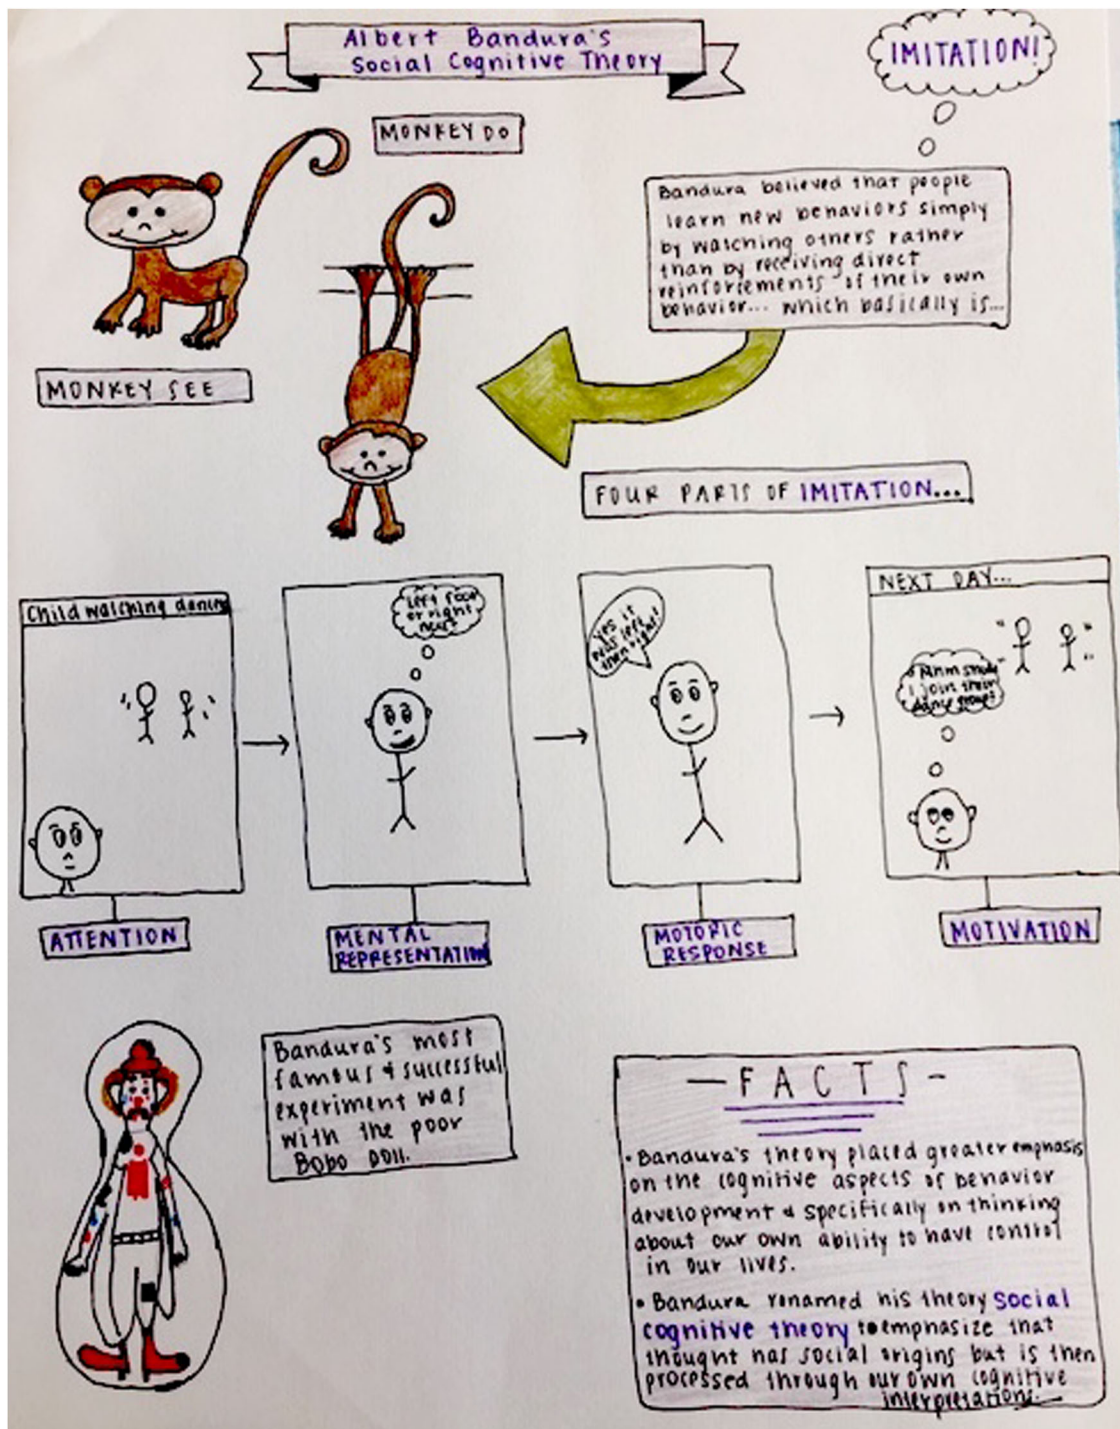 Albert Bandura's
Social Cognitive Theory
IMITATION!
MONKEY DO
Bandura believed that people
learn new behaviors simply
by watching others rather
than by receiving direct
reinforcements of their own
behavior... which basically is...
MONKEY SEE
FOUR PARTS OF IMITATION...
Child watching dancing
left foot
or right
next?
Yes it
was left
then right!
NEXT DAY...
I join their
dance group?
ATTENTION
MENTAL
REPRESENTATION
MOTORIC
RESPONSE
MOTIVATION
Bandura's most
famous & successful
experiment was
with the poor
Bobo Doll.
- FACTS -
• Bandura's theory placed greater emphasis
on the cognitive aspects of behavior
development & specifically on thinking
about our own ability to have control
in our lives.
• Bandura renamed his theory social
cognitive theory to emphasize that
thought has social origins but is then
processed through our own cognitive
interpretations.